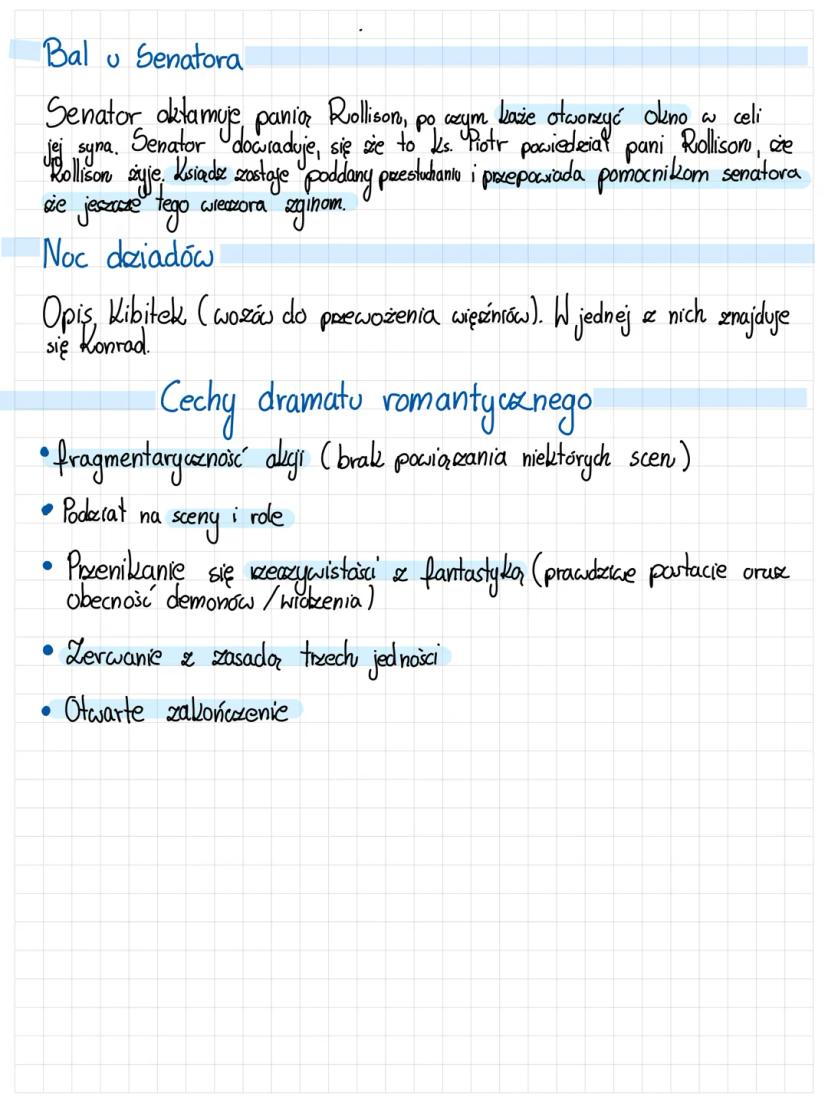 Bal u Senatora
Senator okłamuje panią Rollison, po czym każe otworzyć okno w celi
jej syna. Senator dowiaduje, się że to ks. Piotr powiedział pani Rollison, że
Rollison żyje. Ksiądz zostaje poddany przesłuchaniu i przepowiada pomocnikom senatora
że jeszcze tego wieczora zginom.
Noc dziadów
Opis Kibitek (wozów do przewożenia więźniów). W jednej z nich znajduje
się Konrad.
Cechy dramatu romantycznego
• fragmentaryczność akcji (brak powiązania niektórych scen)
• Podział na sceny i role
• Przenikanie się rzeczywistości z fantastyką (prawdziwe postacie oraz
obecność demonów /widzenia)
• Zerwanie z zasadą trzech jedności
• Otwarte zakończenie